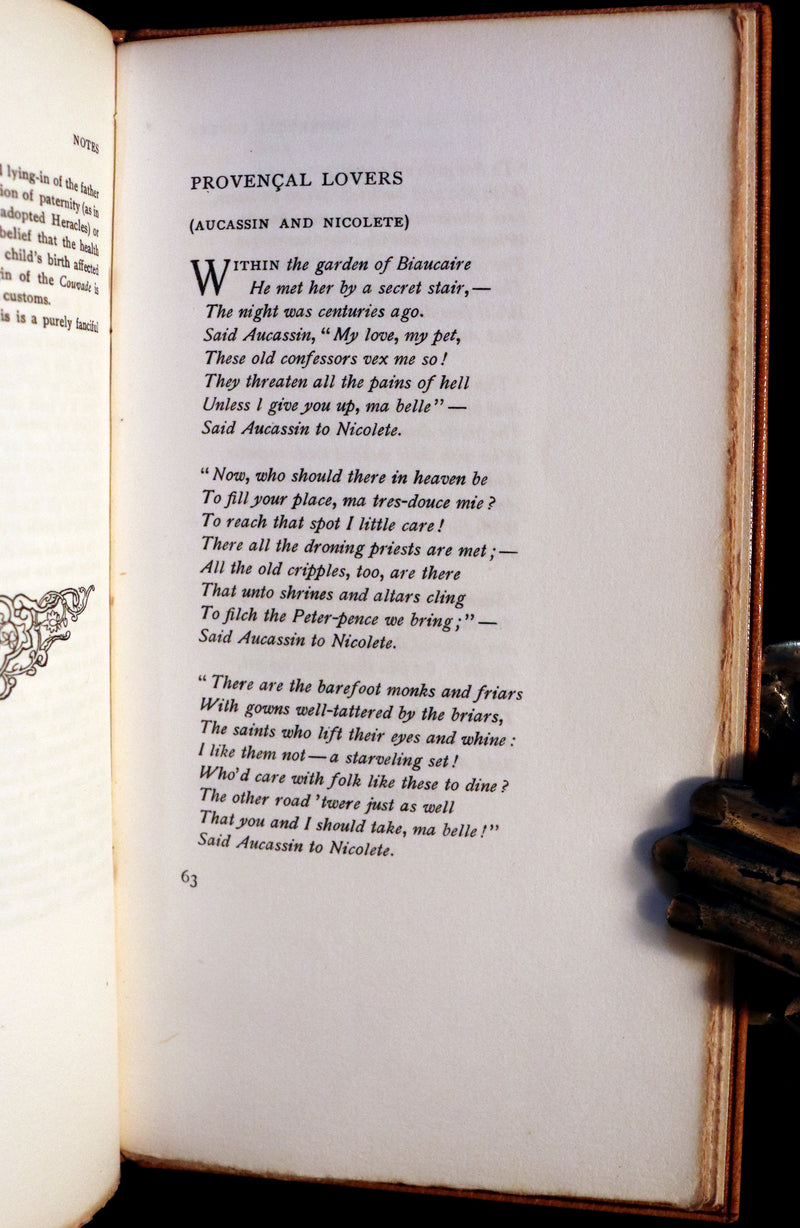 NOTES
lying-in of the father
ion of paternity (as in
adopted Heracles) or
belief that the health
child's birth affected
in of the Couvade is
customs.
is is a purely fanciful
PROVENÇAL LOVERS
(AUCASSIN AND NICOLETE)
WITHIN the garden of Biaucaire
He met her by a secret stair,—
The night was centuries ago.
Said Aucassin, “My love, my pet,
These old confessors vex me so!
They threaten all the pains of hell
Unless I give you up, ma belle”—
Said Aucassin to Nicolete.
“Now, who should there in heaven be
To fill your place, ma tres-douce mie?
To reach that spot I little care!
There all the droning priests are met;—
All the old cripples, too, are there
That unto shrines and altars cling
To filch the Peter-pence we bring;”—
Said Aucassin to Nicolete.
“There are the barefoot monks and friars
With gowns well-tattered by the briars,
The saints who lift their eyes and whine:
I like them not—a starveling set!
Who'd care with folk like these to dine?
The other road 'twere just as well
That you and I should take, ma belle!”
Said Aucassin to Nicolete.
63